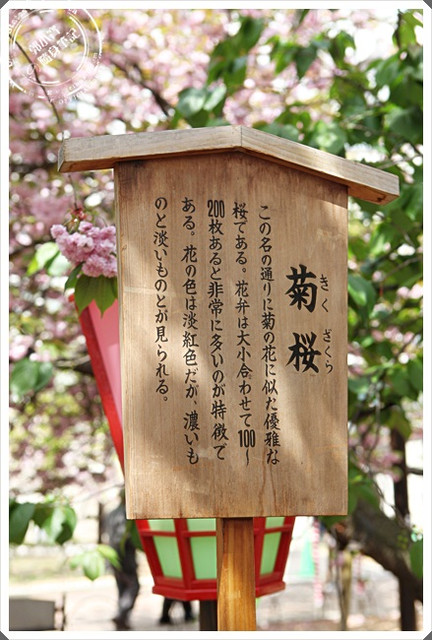 菊桜
きくざくら
この名の通りに菊の花に似た優雅な
桜である。花弁は大小合わせて100〜
200枚あると非常に多いのが特徴で
ある。花の色は淡紅色だが、濃いも
のと淡いものとが見られる。